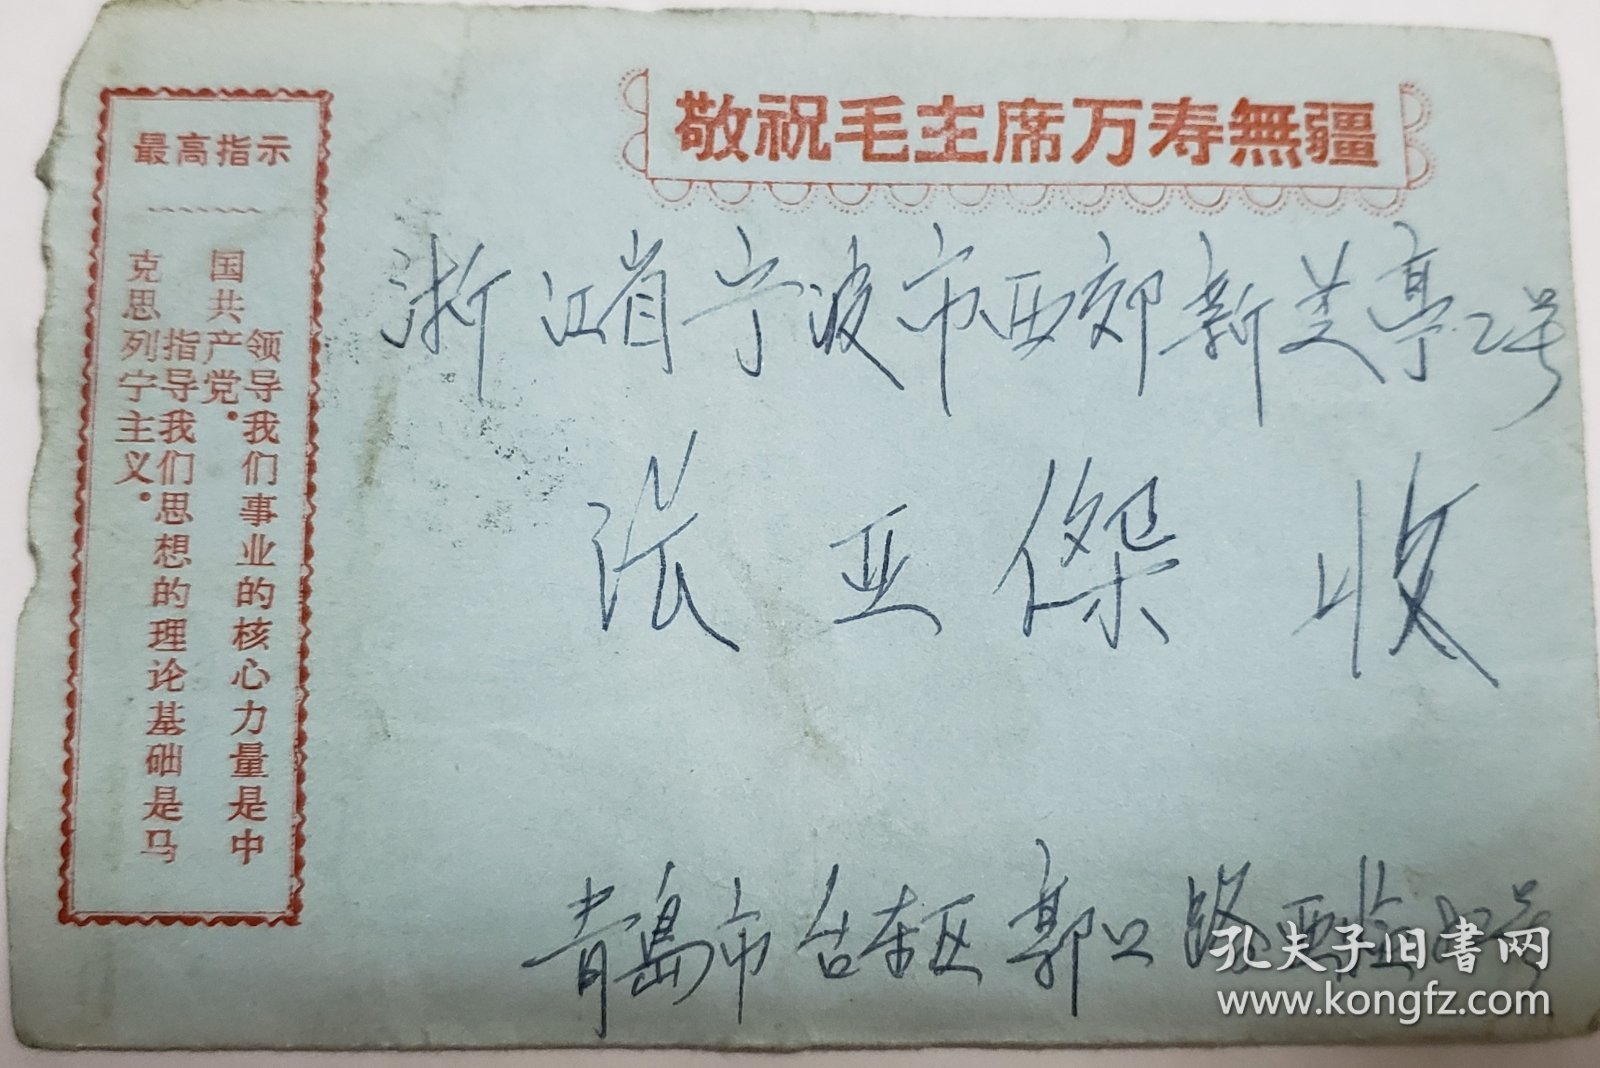 敬祝毛主席万寿無疆
最高指示
领导我们事业的核心力量是中
国共产党。
指导我们思想的理论基础是马
克思列宁主义。
浙江省宁波市西郊新芝亭2号
张亚傑 收
青岛市台东区郭口路西
号
孔夫子旧書网
www.kongfz.com